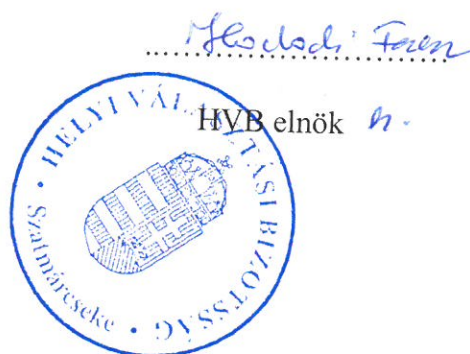 Ferenc
HVB elnök h.
HELYI VÁLASZTÁSI BIZOTTSÁG
Szatmárcseke